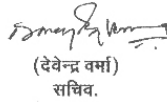 (देवेन्द्र वर्मा)
सचिव.